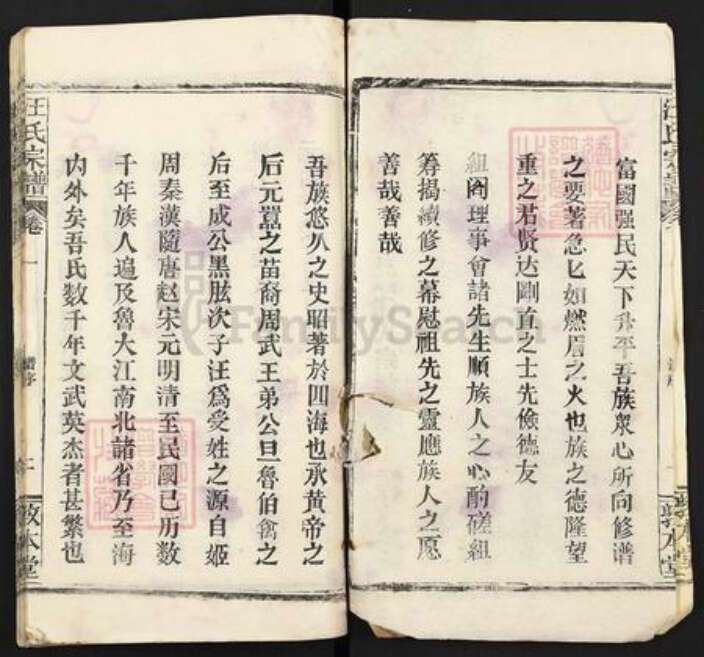 富國强民天下升平吾族衆心所向修谱
之要著急匕如燃眉之火也族之德隆望
重之君贤达剛首之士先儉德友
組阁理事會諸先生順族人之心酌磋組
筹揭續修之幕慰祖先之靈應族人之愿
善哉善哉
敦本堂
吾族悠久之史昭著於四海也承黄帝之
后元囂之苗裔周武王弟公旦魯伯禽之
后至成公黑肱次子汪爲受姓之源自姬
周秦漢隨唐赵宋元明清至民國已历数
千年族人遍及魯大江南北諸省乃至海
内外矣吾氏数千年文武英杰者甚繁也
汪氏宗譜
卷一
譜序
二
敦本堂
FamilySearch